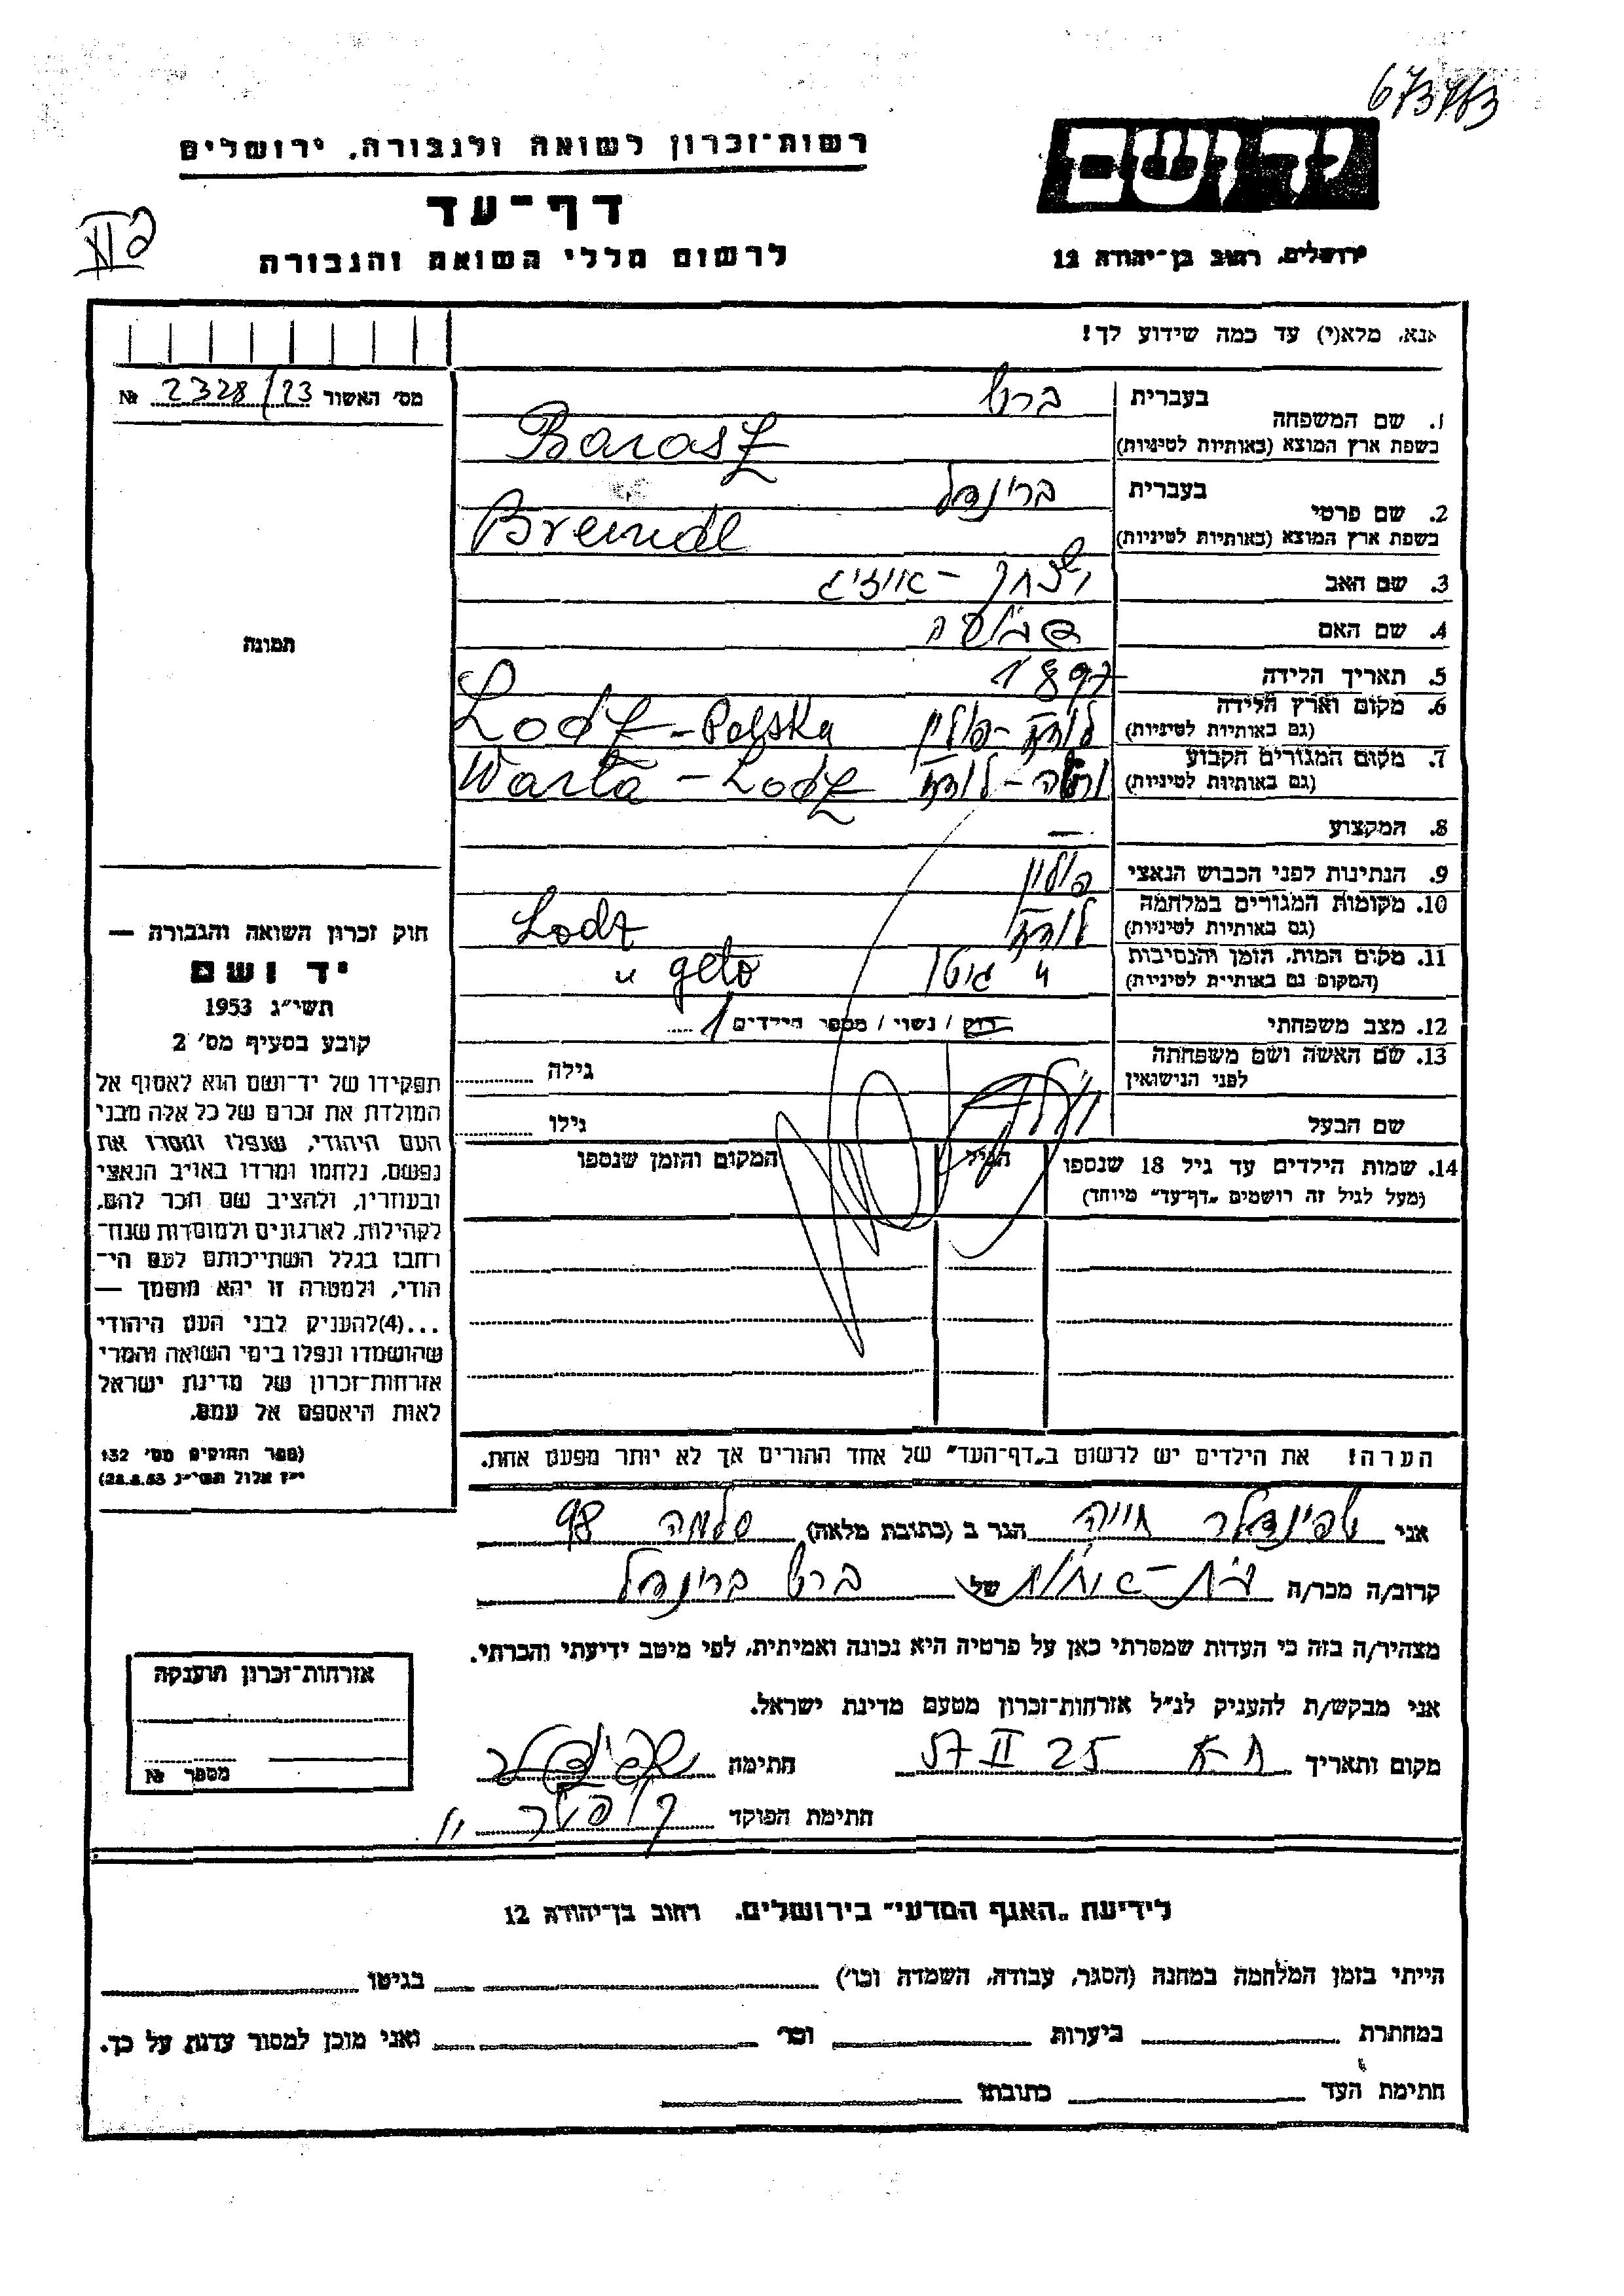 673763
יד ושם
רשות־זכרון לשואה ולגבורה, ירושלים
דף־עד
לרשום חללי השואה והגבורה
ירושלים, רחוב בן־יהודה 12
אנא, מלא(י) עד כמה שידוע לך!
מס׳ האשור 2328/23 №
1. שם המשפחה
בעברית
בשפת ארץ המוצא (באותיות לטיניות)
Barasz
2. שם פרטי
בעברית ברינדל
בשפת ארץ המוצא (באותיות לטיניות)
Breindl
3. שם האב יצחק - אייזיג
4. שם האם
5. תאריך הלידה 1897
6. מקום וארץ הלידה
(גם באותיות לטיניות) לודז - פולין Lodz - Polska
7. מקום המגורים הקבוע
(גם באותיות לטיניות) ורטה - לודז Warta - Lodz
8. המקצוע —
9. הנתינות לפני הכבוש הנאצי פולין
10. מקומות המגורים במלחמה
(גם באותיות לטיניות) לודז Lodz
11. מקום המות, הזמן והנסיבות
(המקום גם באותיות לטיניות) " גיטו " geto
12. מצב משפחתי רוק / נשוי / מספר הילדים 1
13. שם האשה ושם משפחתה
לפני הנישואין
גילה
שם הבעל
גילו
14. שמות הילדים עד גיל 18 שנספו
(מעל לגיל זה רושמים „דף־עד” מיוחד)
הגיל
המקום והזמן שנספו
הערה! את הילדים יש לרשום ב„דף־העד” של אחד ההורים אך לא יותר מפעם אחת.
תמונה
חוק זכרון השואה והגבורה —
יד ושם
תשי״ג 1953
קובע בסעיף מס׳ 2
תפקידו של יד־ושם הוא לאסוף אל
המולדת את זכרם של כל אלה מבני
העם היהודי, שנפלו ומסרו את
נפשם, נלחמו ומרדו באויב הנאצי
ובעוזריו, ולהציב שם וזכר להם,
לקהילות, לארגונים ולמוסדות שנח־
רבו בגלל השתייכותם לעם הי־
הודי, ולמטרה זו יהא מוסמך —
...(4)להעניק לבני העם היהודי
שהושמדו ונפלו בימי השואה והמרי
אזרחות־זכרון של מדינת ישראל
לאות היאספם אל עמם.
(ספר החוקים מס׳ 132
י״ז אלול תשי״ג 28.8.53)
אני שפינדלר חייה הגר ב (כתובת מלאה) סלמה 98
קרוב/ה מכר/ה בת-אחות של ברש ברינדל
מצהיר/ה בזה כי העדות שמסרתי כאן על פרטיה היא נכונה ואמיתית, לפי מיטב ידיעתי והכרתי.
אני מבקש/ת להעניק לנ״ל אזרחות־זכרון מטעם מדינת ישראל.
מקום ותאריך ת-א 25 II 57 חתימה שפינדלר
חתימת הפוקד
אזרחות־זכרון הוענקה
מספר №
לידיעת „האגף המדעי” בירושלים. רחוב בן־יהודה 12
הייתי בזמן המלחמה במחנה (הסגר, עבודה, השמדה וכו׳) בגיטו
במחתרת ביערות וכו׳ ואני מוכן למסור עדות על כך.
חתימת העד כתובתו